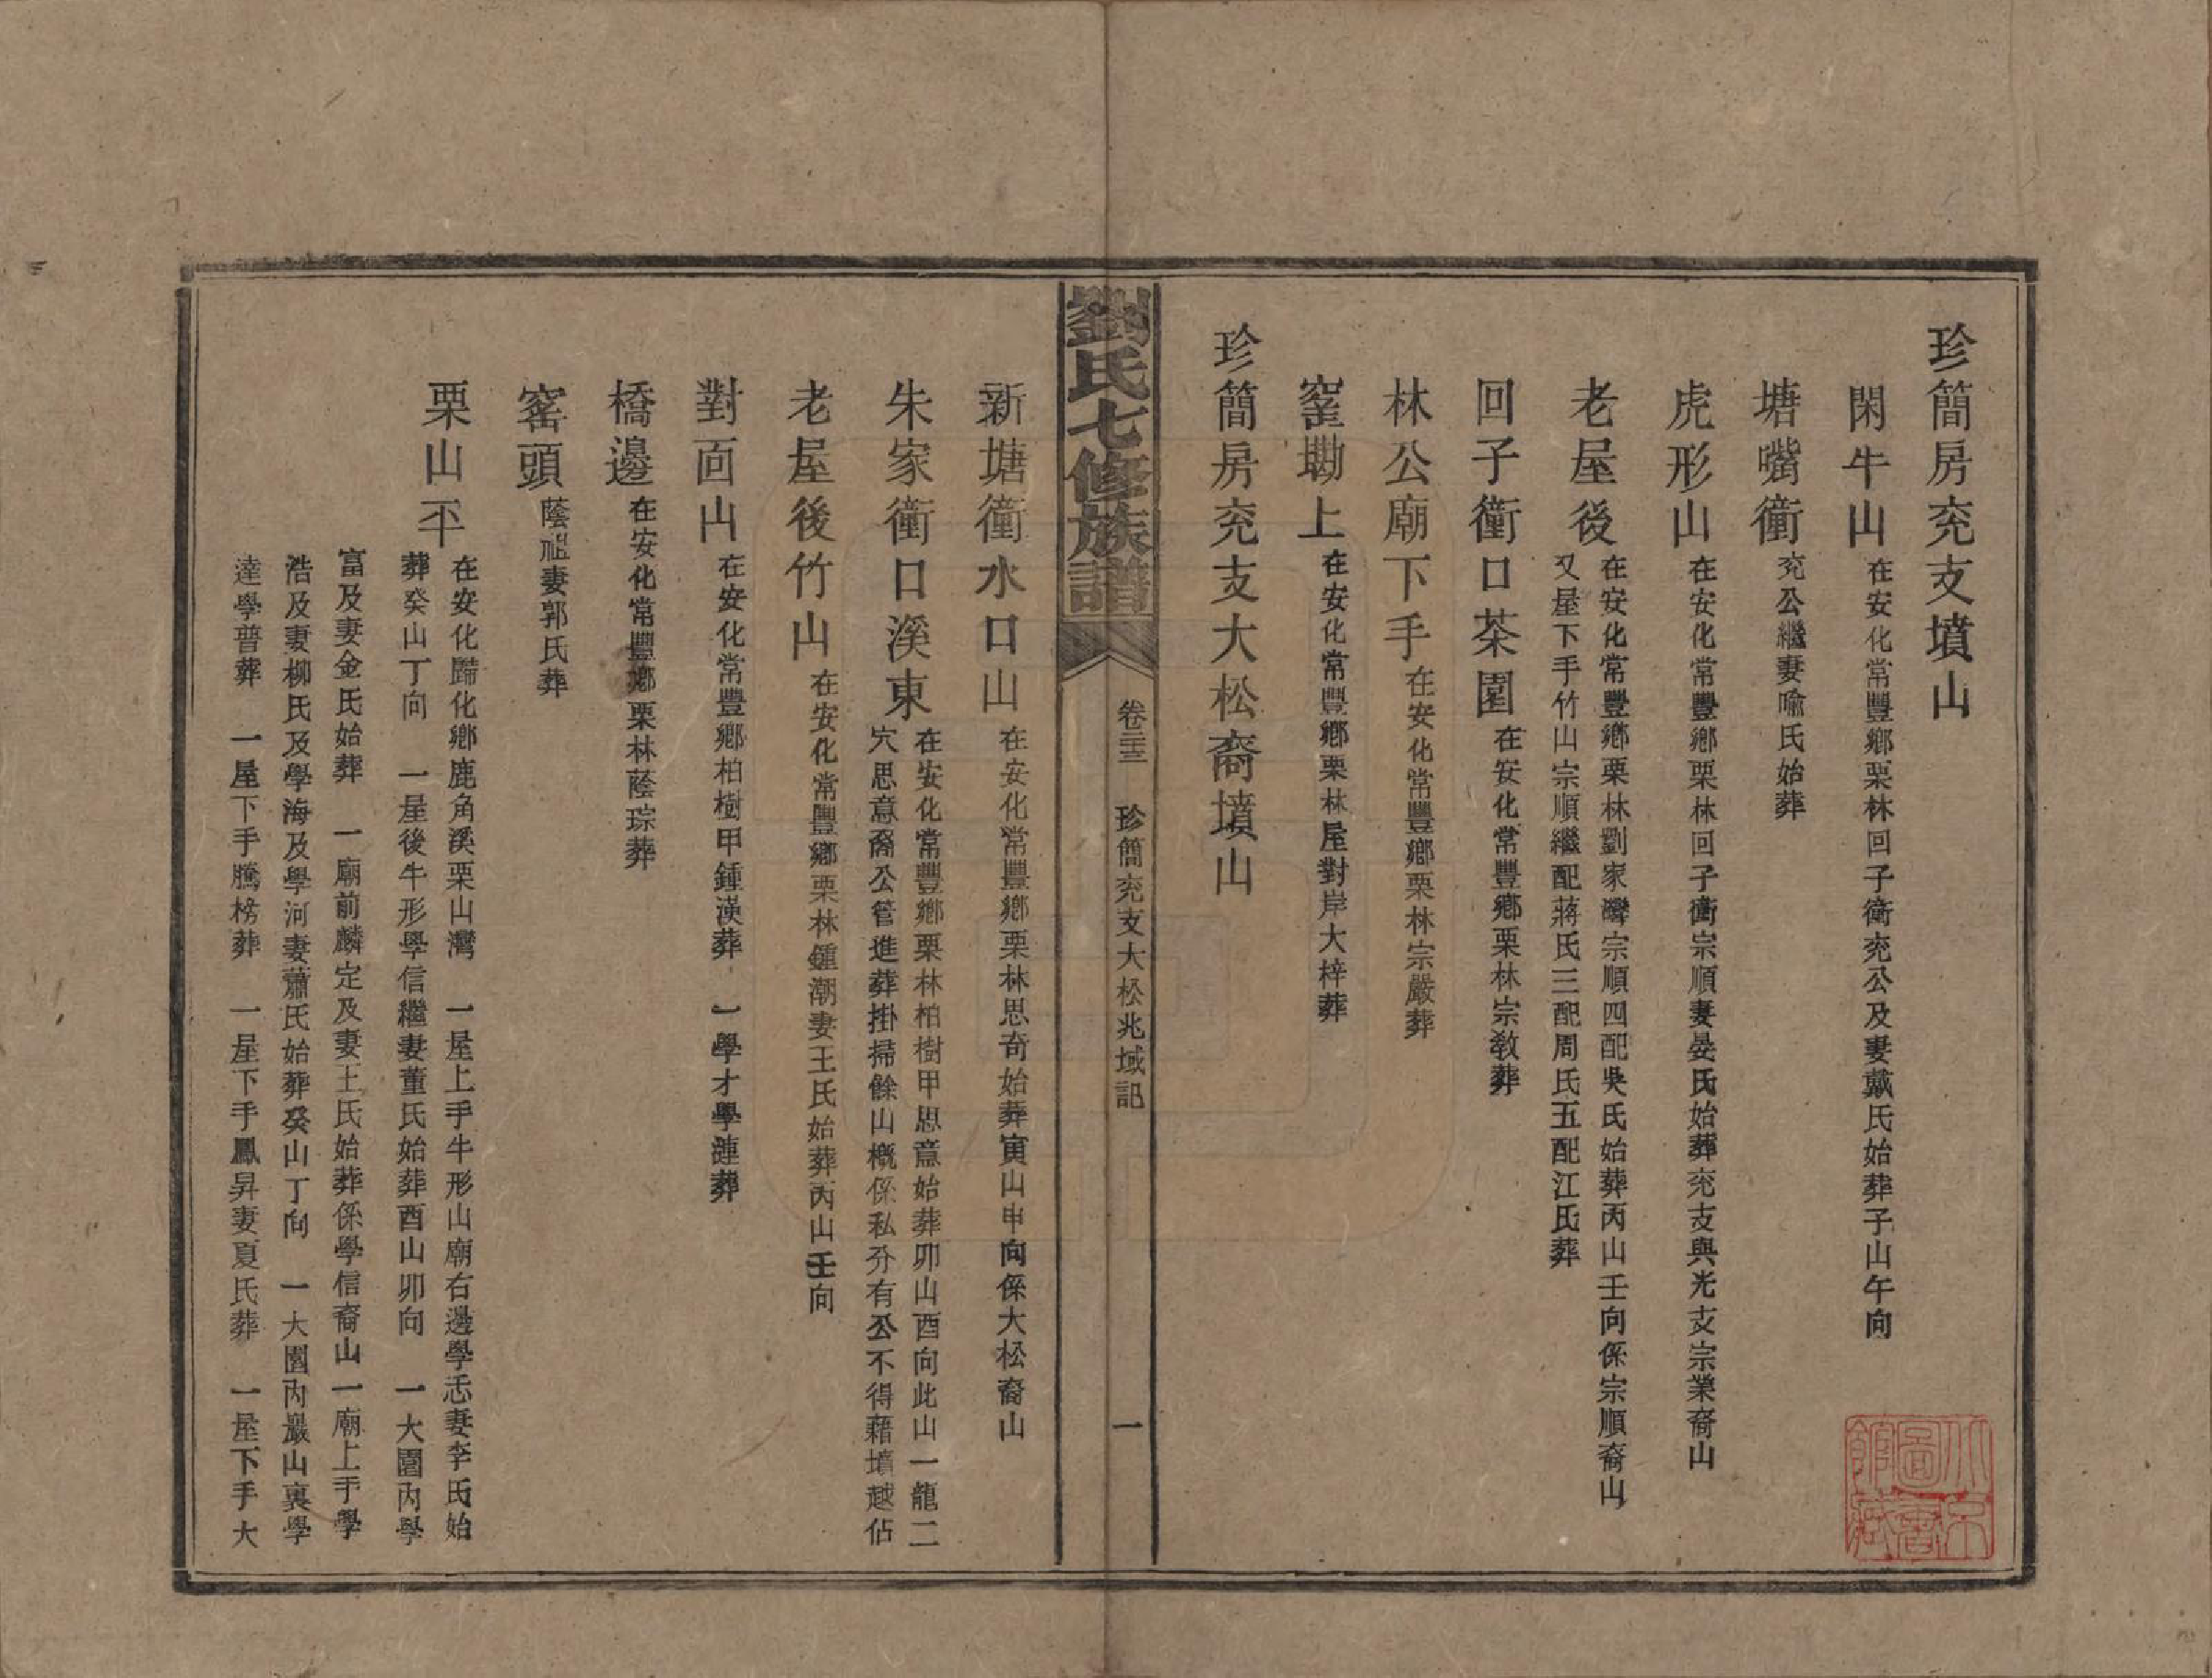 珍簡房兖支墳山
閑牛山 在安化常豐鄉栗林回子衝兖公及妻戴氏始葬子山午向
塘嘴衝 兖公繼妻喻氏始葬
虎形山 在安化常豐鄉栗林回子衝宗順妻晏氏始葬兖支與光支宗業裔山
老屋後 在安化常豐鄉栗林劉家灣宗順四配吳氏始葬丙山壬向係宗順裔山
又屋下手竹山宗順繼配蔣氏三配周氏五配江氏葬
回子衝口茶園 在安化常豐鄉栗林宗教葬
林公廟下手 在安化常豐鄉栗林宗嚴葬
窰墈上 在安化常豐鄉栗林屋對岸大梓葬
珍簡房兖支大松裔墳山
劉氏七修族譜 卷三三 珍簡兖支大松兆域記 一
新塘衝水口山 在安化常豐鄉栗林思奇始葬寅山申向係大松裔山
朱家衝口溪東 在安化常豐鄉栗林柏樹甲思意始葬卯山酉向此山一龍二
穴思意裔公管進葬掛掃餘山概係私分有公不得藉墳越佔
老屋後竹山 在安化常豐鄉栗林鍾潮妻王氏始葬丙山壬向
對面山 在安化常豐鄉柏樹甲鍾漢葬 一學才學漣葬
橋邊 在安化常豐鄉栗林蔭琮葬
窰頭 蔭祖妻郭氏葬
栗山不 在安化歸化鄉鹿角溪栗山灣 一屋上手牛形山廟右邊學忎妻李氏始
葬癸山丁向 一屋後牛形學信繼妻董氏始葬酉山卯向 一大園內學
富及妻金氏始葬 一廟前麟定及妻王氏始葬係學信裔山一廟上手學
浩及妻柳氏及學海及學河妻蕭氏始葬癸山丁向 一大園內巖山裏學
達學普葬 一屋下手騰榜葬 一屋下手鳳昇妻夏氏葬 一屋下手大
北京圖書館藏